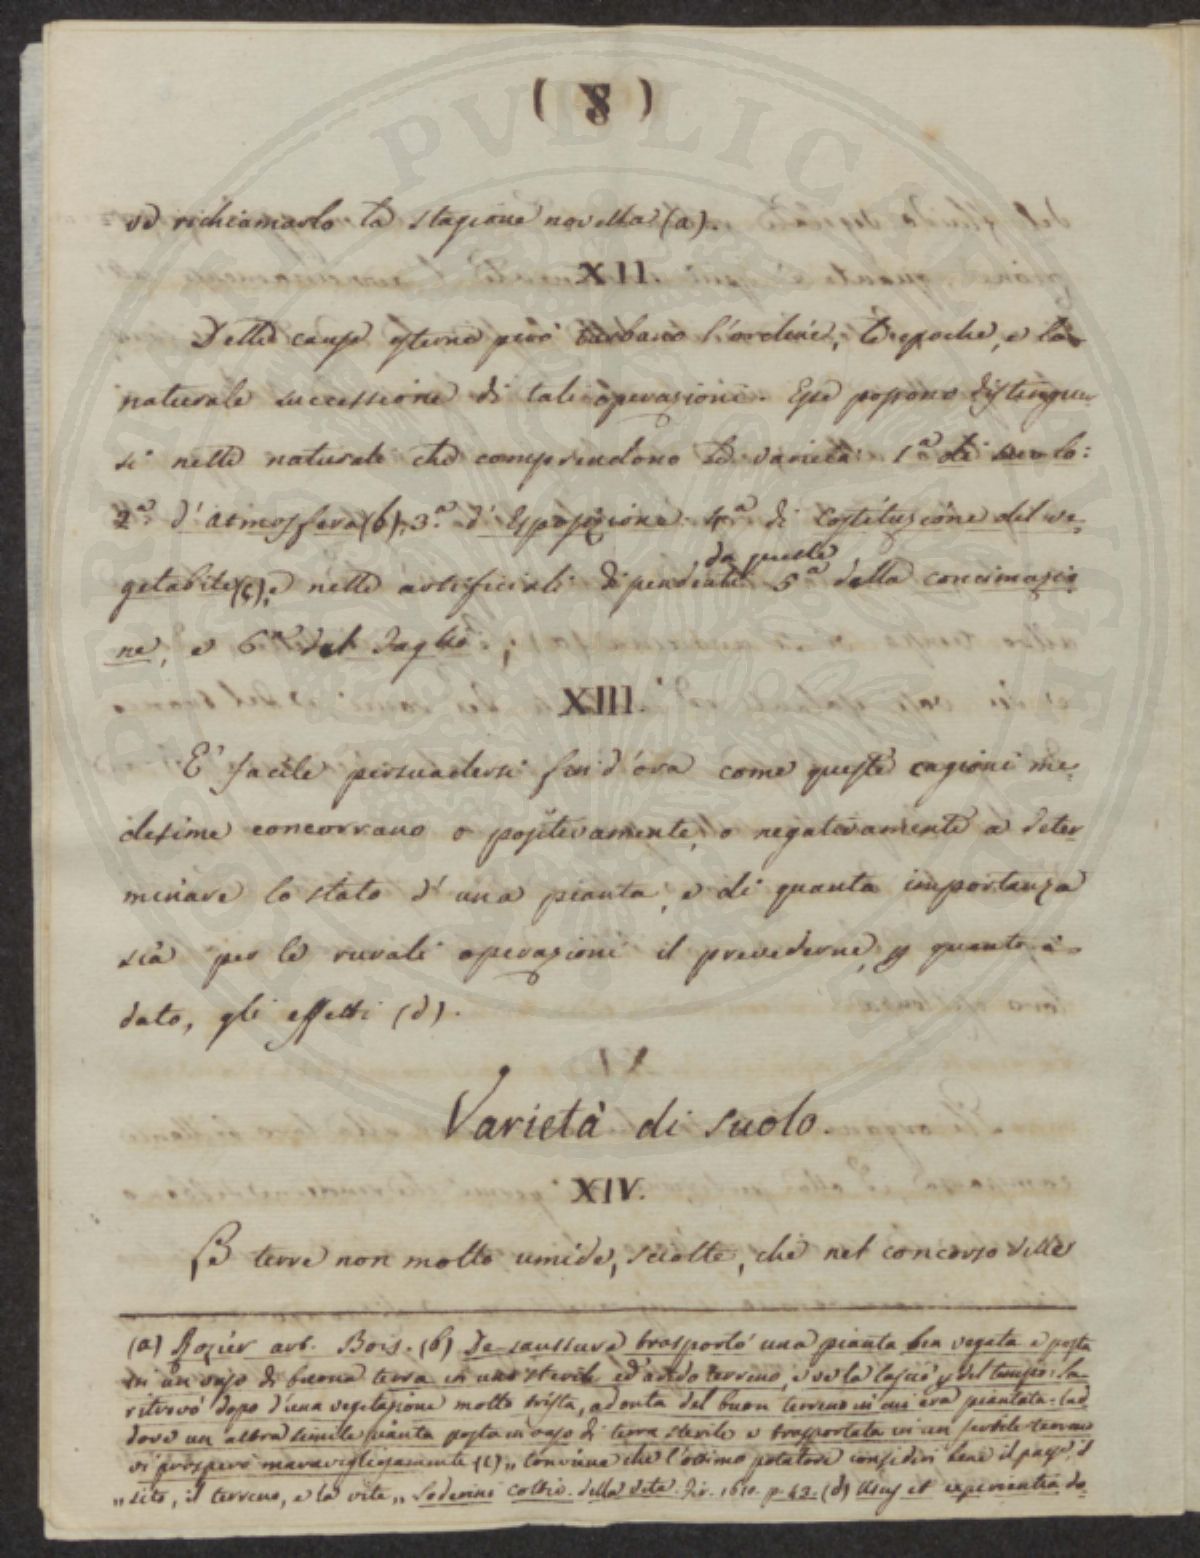 ( 8 )
và richiamarlo la stagione novella (a).
XII.
Delle cause esterne però turbano l'ordine, le epoche, e la
naturale successione di tali operazioni. Esse possono distinguer
si nelle naturali che comprendono le varietà 1.ª di suolo:
2.ª d'atmosfera (b), 3.ª d'Esposizione. 4.ª di costituzione del ve-
getabile (c), e nelle artificiali dipendenti da quelle 5.ª della concimazio
ne, e 6.ª del taglio.
XIII.
E' facile persuadersi fin d'ora come queste cagioni me-
desime concorrano o positivamente, o negativamente a deter
minare lo stato d'una pianta, e di quanta importanza
sia per le rurali operazioni il prevederne, p quanto è
dato, gli effetti (d).
Varietà di suolo.
XIV.
Le terre non molto umide, sciolte, che nel concorso delle
(a) Rozier art. Bois. (b) De-saussure trasportò una pianta ben vegeta e posta
in un vaso di buona terra in uno sterile ed arido terreno, e ve la lasciò p del tempo: la
ritrovò dopo d'una vegetazione molto trista, adonta del buon terreno in cui era piantata:
dove un altra simile pianta posta in vaso di terra sterile e trasportata in un fertile terreno
vi prosperò maravigliosamente (c) „ Conviene che l'ottimo potatore consideri bene il paese, il
„ sito, il terreno, e la vite „ Soderini coltiv. della vite. Fir. 1610. p. 42. (d) Usus et experientia do-